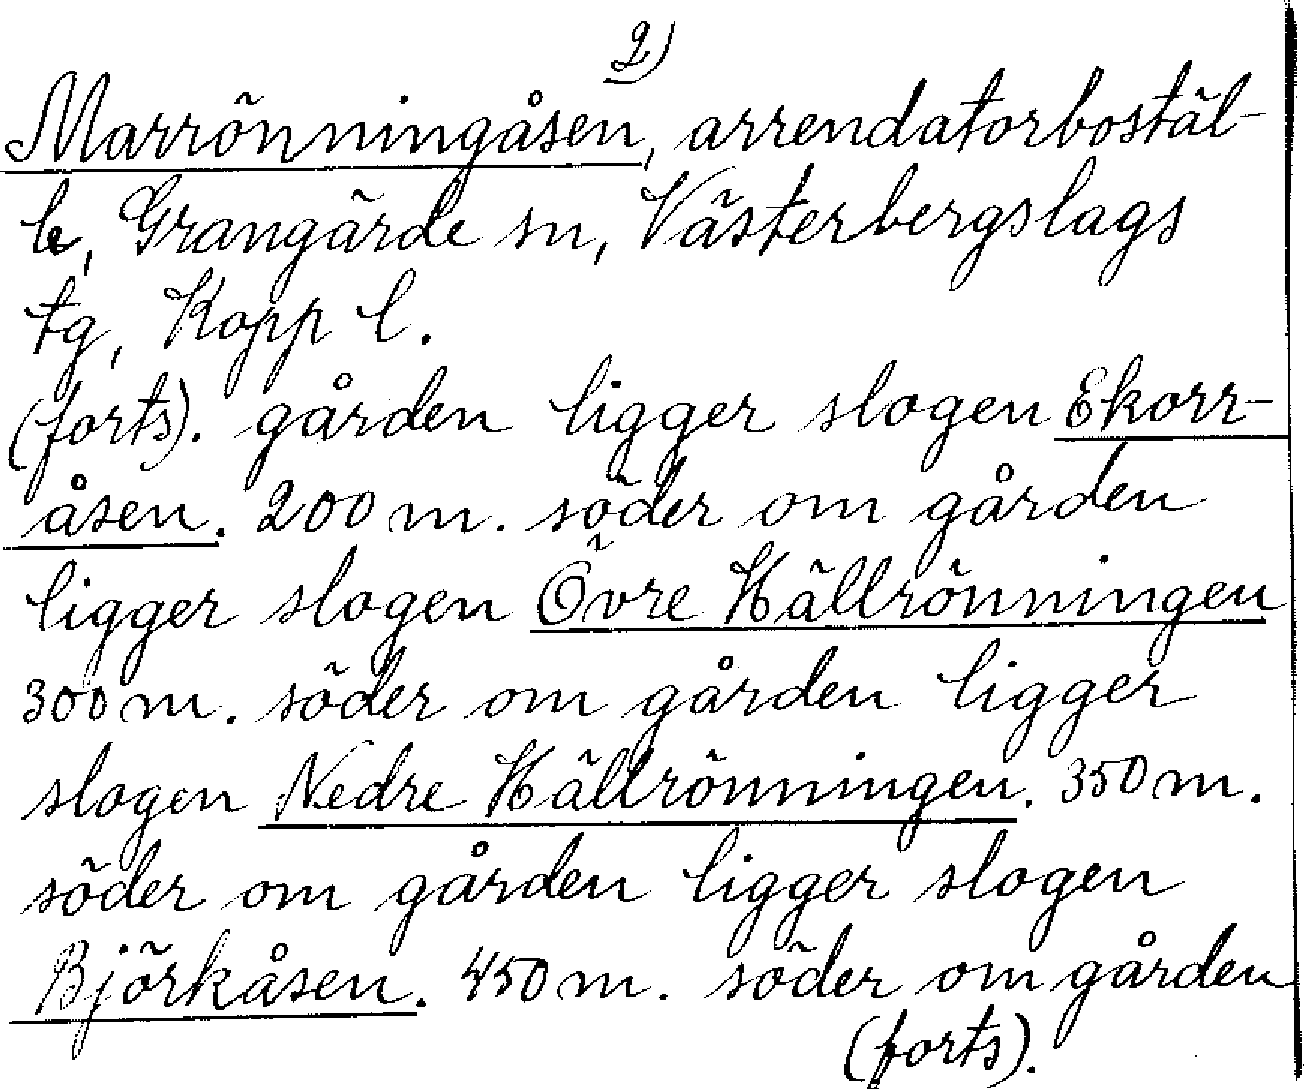 2)
Marrönningåsen, arrendatorbostäl-
le, Grangärde sn, Västerbergslags
tg, Kopp l.
(forts). gården ligger slogen Ekorr-
åsen. 200 m. söder om gården
ligger slogen Övre Hällrönningen
300 m. söder om gården ligger
slogen Nedre Hällrönningen. 350 m.
söder om gården ligger slogen
Björkåsen. 450 m. söder om gården
(forts).